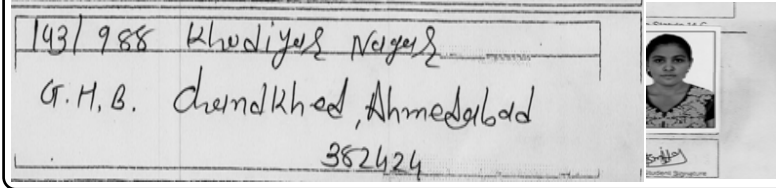 143/988 Khodiyar Nagar
G.H.B. Chandkhed, Ahmedabad
382424
Student Signature